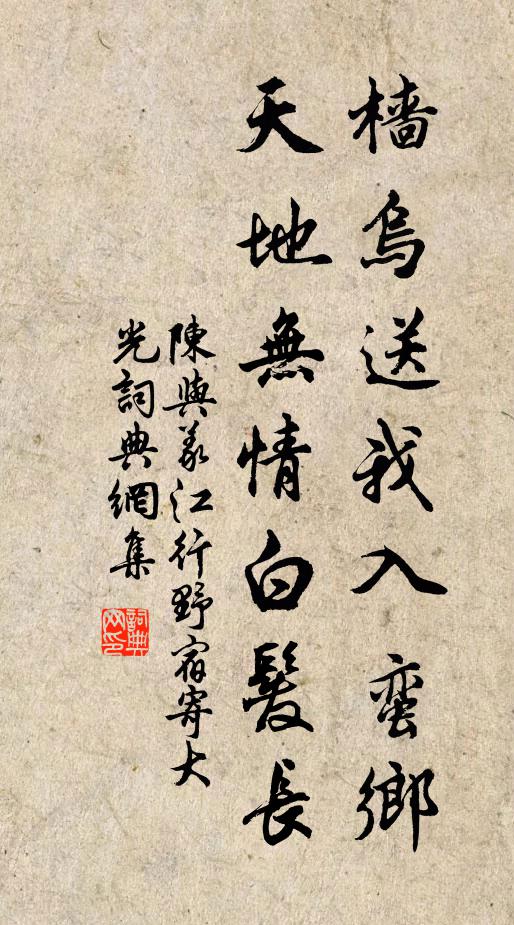 檣烏送我入蛮鄉
天地無情白髮長
陳與義江行野宿寄大
光詞典網集
詞典
网印